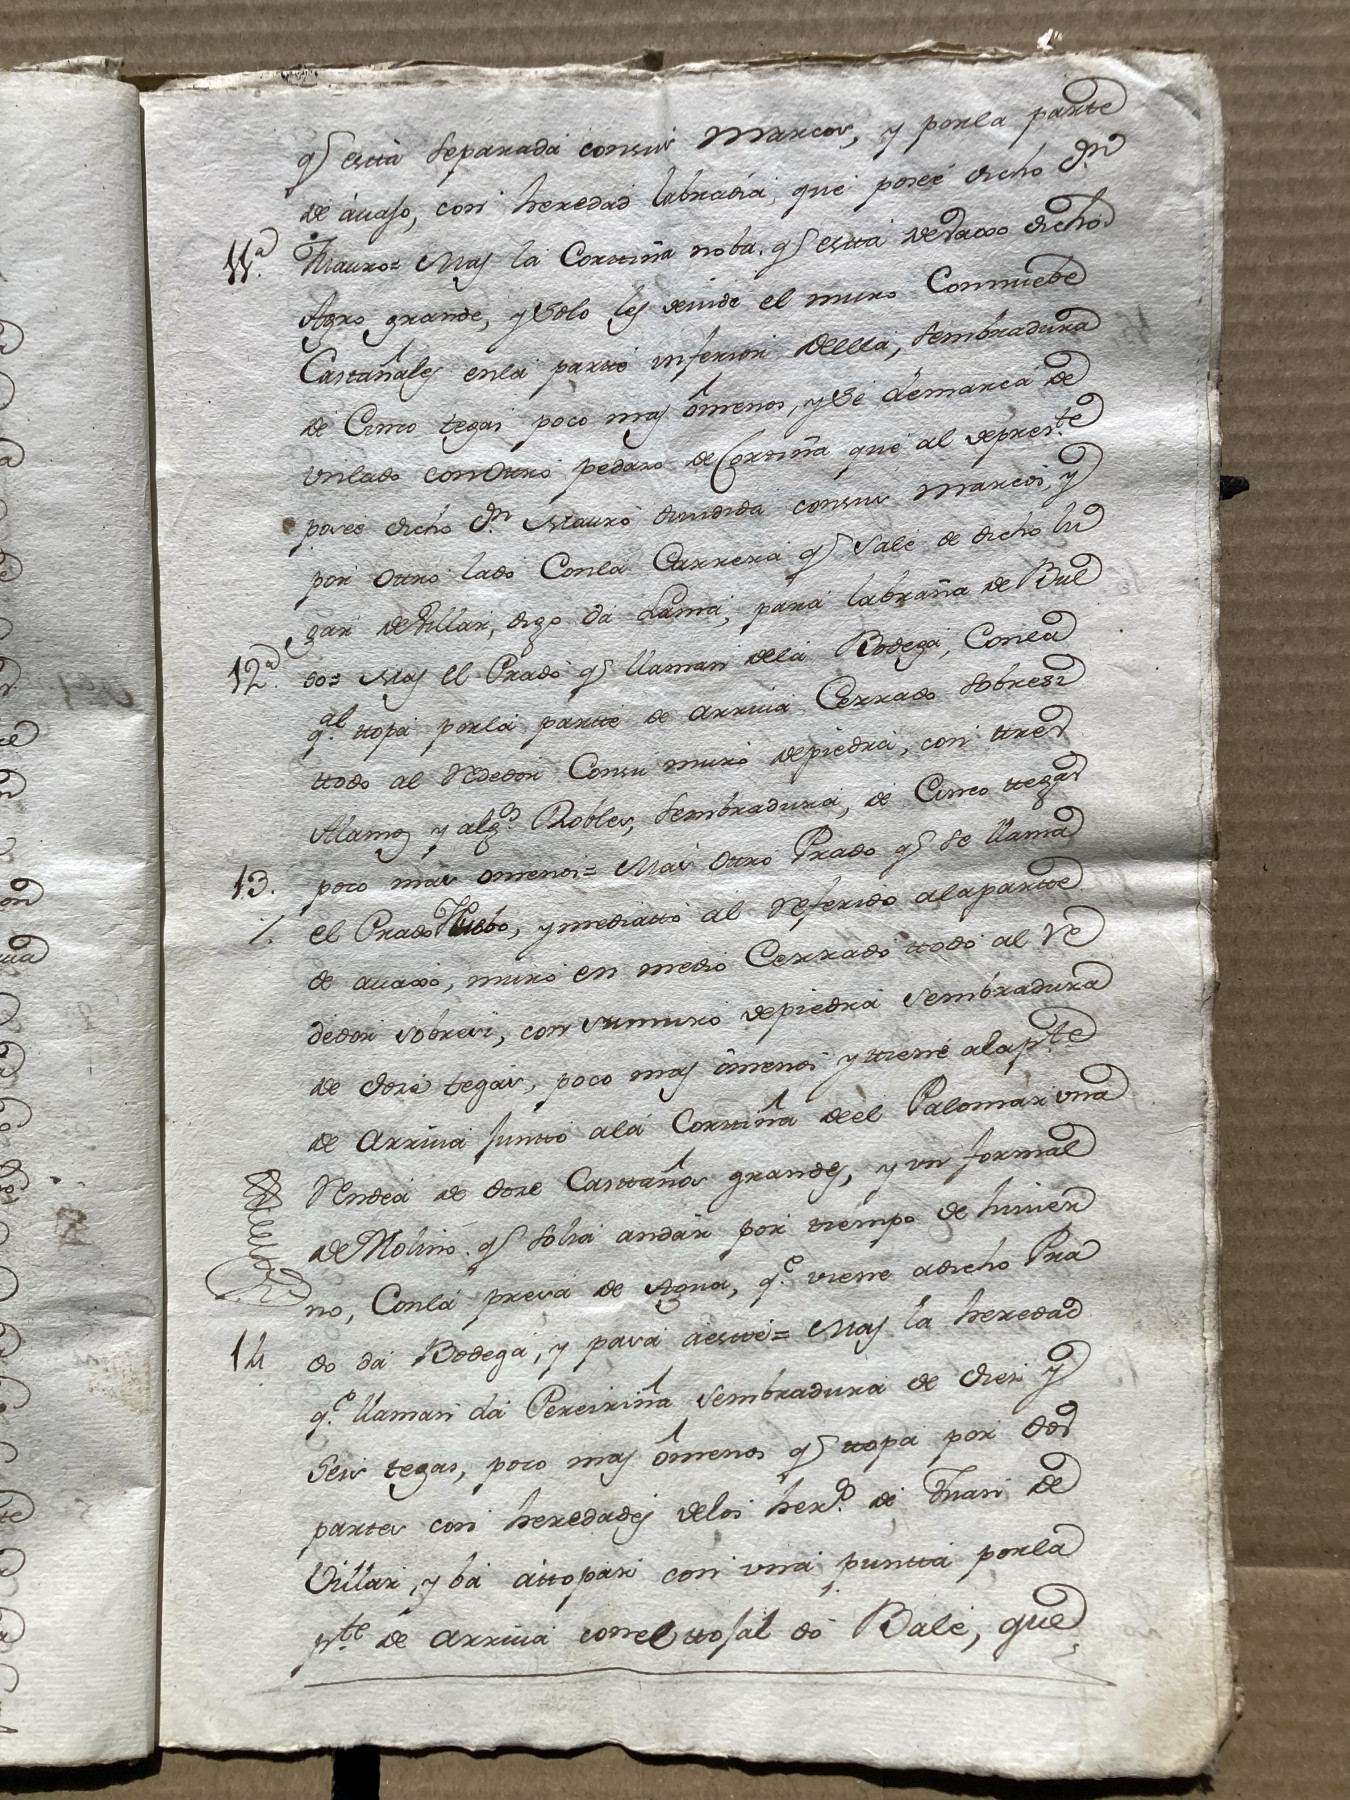 q.e está separada consus Marcos, y porla parte
de áuajo, con heredad labradia, que poseé dicho Dn
11ª Mauro= Mas la Corttiña noba q.e estta devaxo dicho
Agro grande, y Solo les deuide el muro Connuebe
Casttañales enla partte ynferior dellla, sembradura
de Cinco tegas poco mas ômenos, y Se demarca de
vnlado conOttro pedazo de Corttiña que al depresте
posee dicho Dn Mauro diuidida consus Marcos, y
por Ottro lado Conla Carrera q.e sale de dicho lu
gar deVillar, digo da Lama, para labraña de Bal
12ª do= Mas El Prado q.e llaman dela Bodega, Conla
q.l ttopa porla partte de arriua Cerrado sobresi
ttodo al Rededor Consu muro depiedra, con ttres
Alamos y alg.s Robles, sembradura, de Cinco ttegas
13. poco mas omenos= Mas Ottro Prado q.e se llama
el Prado Nuebo, ymediatto al Referido alapartte
de auaxo, muro en medio Cerrado ttodo al Re
dedor sobresi, con sumuro depiedra sembradura
de doce tegas, poco mas ômenos y ttiene alap.te
de Arriua Juntto alá Corttiña deel Palomar vna
Rendea de doze Casttaños grandes, y vn formal
deMolino q.e solia andar por ttiempo de hinier
no, Conla presa de Agua, q.e viene adicho Pra
14 do da Bodega, y para áestte= Mas la heredad
q.e llaman da Pereiriña sembradura de diez y
seis tegas, poco mas ômenos q.e ttopa por dos
partes con heredades delos her.s de Juan de
Villar, y bá áttopar con vna puntta porla
p.te de arriua conel ttojal do Bale, que